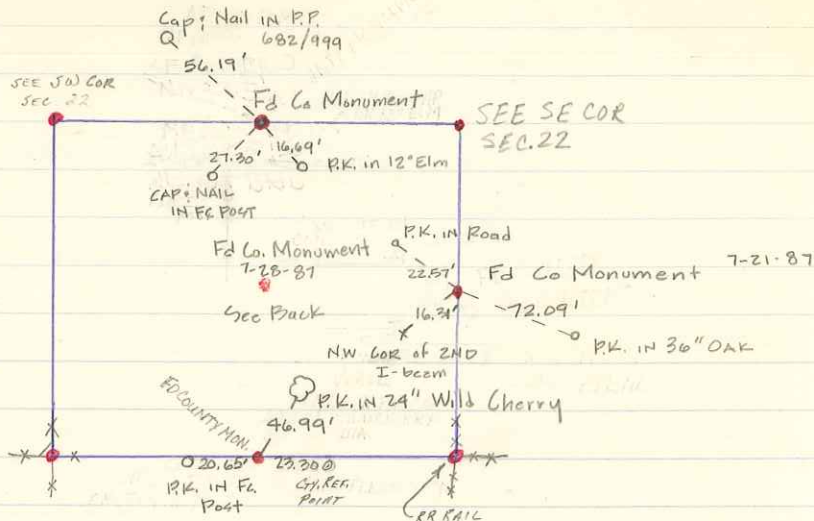 Cap & Nail IN P.P.
682/999
56.19'
SEE SW COR
SEC 22
Fd Co Monument
SEE SE COR
SEC. 22
27.30'
16.69'
P.K. in 12" Elm
CAP & NAIL
IN FC. POST
P.K. IN Road
Fd Co. Monument
7-28-87
See Back
22.57'
Fd Co Monument
7-21-87
16.31'
72.09'
NW COR of 2ND
I-beam
P.K. IN 36" OAK
P.K. IN 24" Wild Cherry
FD COUNTY MON.
46.99'
20.65'
23.30
P.K. in Fc.
Post
Cty. REF.
POINT
RR RAIL